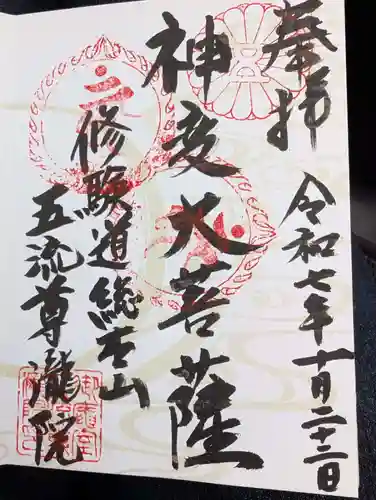 奉拝
令和七年十一月二十二日
神变大菩薩
修験道総本山
五流尊瀧院